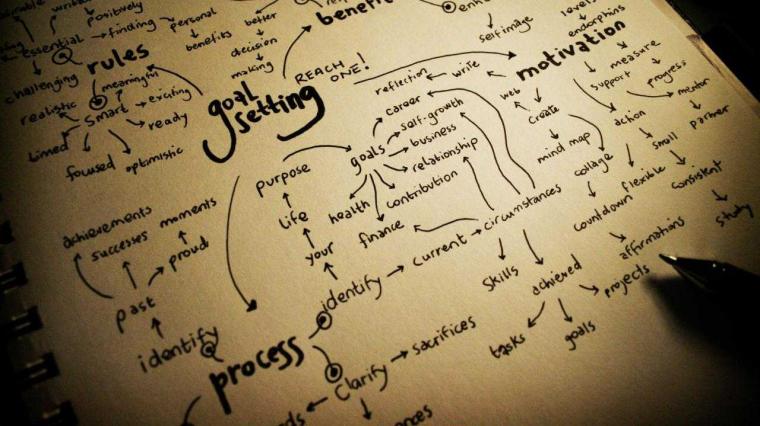 positively
essential
finding
personal
benefits
better
decision
making
self image
endorphins
rules
challenging
meaningful
realistic
smart
exciting
ready
timed
focused
optimistic
goal
setting
REACH
ONE!
motivation
reflection
write
web
create
mind map
collage
countdown
support
measure
progress
mentor
partner
action
small
consistent
study
flexible
affirmations
career
self-growth
business
relationship
contribution
goals
health
finance
purpose
life
your
identify
current
circumstances
skills
achieved
projects
tasks
goals
achievements
successes
moments
proud
past
identify
process
Clarify
sacrifices